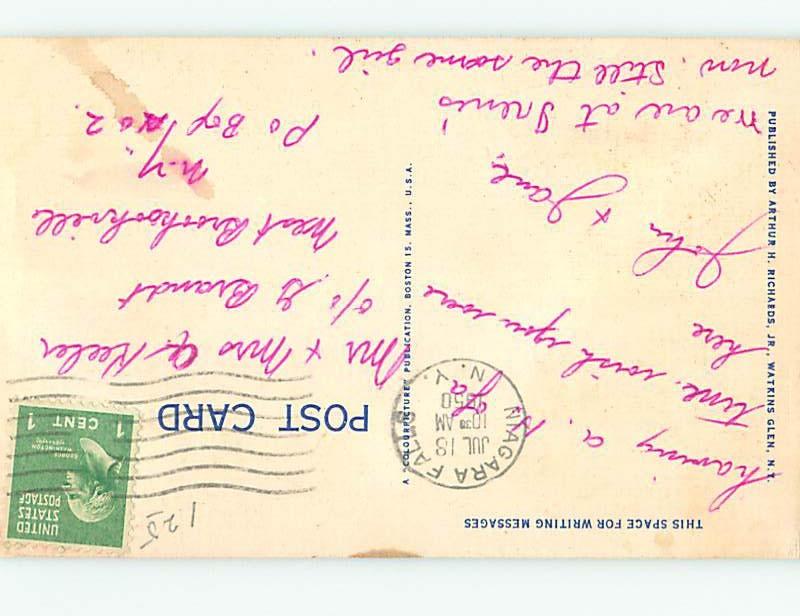 THIS SPACE FOR WRITING MESSAGES
having a
time. wish you were
here
John & Jane.
we are at Irene's
now. Still the same girl.
PUBLISHED BY ARTHUR H. RICHARDS, JR., WATKINS GLEN, N.Y.
A "COLOURPICTURE" PUBLICATION, BOSTON 15, MASS., U.S.A.
NIAGARA FALLS
JUL 18
10 30 AM
1950
N.Y.
POST CARD
UNITED
STATES
POSTAGE
GEORGE
WASHINGTON
1789-1797
1 CENT 1
125
Mr & Mrs A. Keeler
c/o G Brandt
West Brookville
N.Y.
PO Box 202